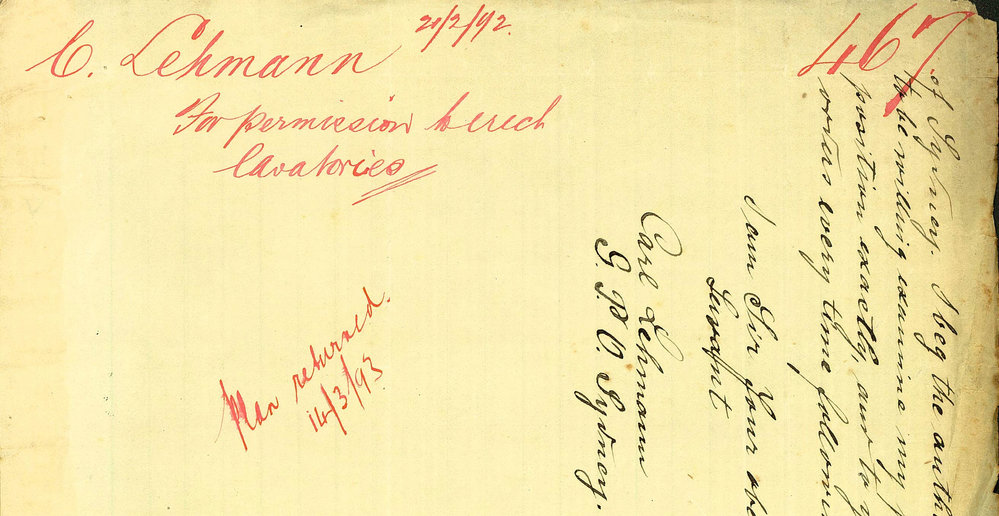 C. Lehmann
2/2/92.
467
For permission to erect
lavatories
Plan returned.
14/3/93
of Sydney. I beg the auth
to be willing examine my
position exactly, and to
every time follow
I am Sir Your obe
Servant
Carl Lehmann
G. P. O. Sydney.